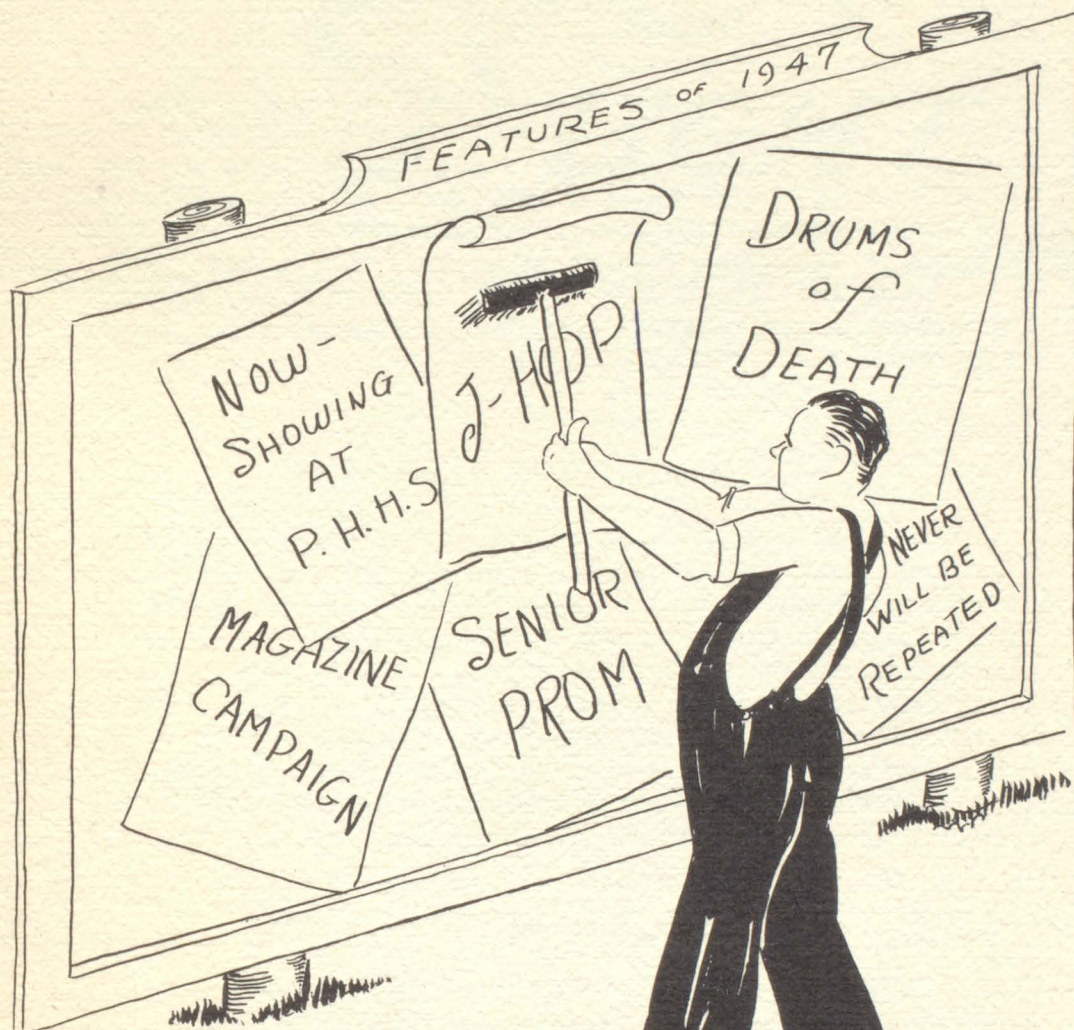 FEATURES OF 1947
NOW-
SHOWING
AT
P.H.H.S
J-HOP
DRUMS
of
DEATH
MAGAZINE
CAMPAIGN
SENIOR
PROM
NEVER
WILL BE
REPEATED